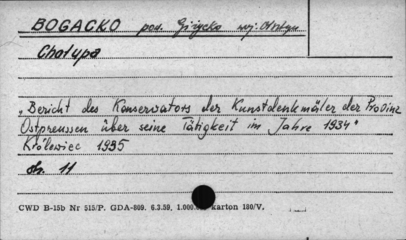 BOGACKO pow. Giżycko woj. Olsztyn
Chałupa
„Bericht des Konservators der Kunstdenkmäler der Provinz
Ostpreussen über seine Tätigkeit im Jahre 1934"
Królewiec 1935
str. 11
CWD B-15b Nr 515/P. GDA-809. 6.3.59. 1.000. karton 180/V.